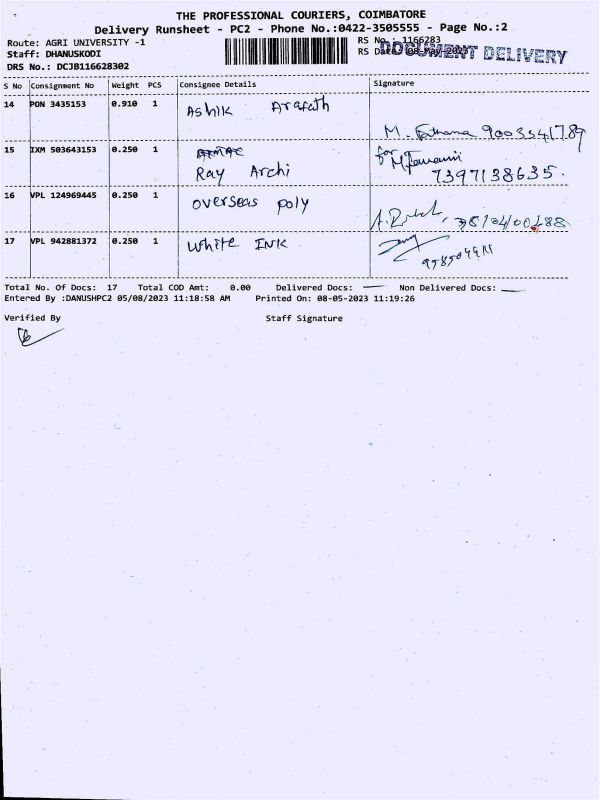 THE PROFESSIONAL COURIERS, COIMBATORE
Delivery Runsheet - PC2 - Phone No.:0422-3505555 - Page No.:2
Route: AGRI UNIVERSITY -1
Staff: DHANUSKODI
DRS No.: DCJB116628302
RS No.: 1166283
RS Date: 08-May-2023
DOCUMENT DELIVERY
S No Consignment No Weight PCS Consignee Details Signature
14 PON 3435153 0.910 1 Ashik Arafath
M. Fathama 9003541789
15 IXM 503643153 0.250 1 Ray Archi
for
7397138635.
16 VPL 124969445 0.250 1 overseas poly
17 VPL 942881372 0.250 1 White INK
Total No. Of Docs: 17 Total COD Amt: 0.00 Delivered Docs: Non Delivered Docs:
Entered By :DANUSHPC2 05/08/2023 11:18:58 AM Printed On: 08-05-2023 11:19:26
Verified By Staff Signature